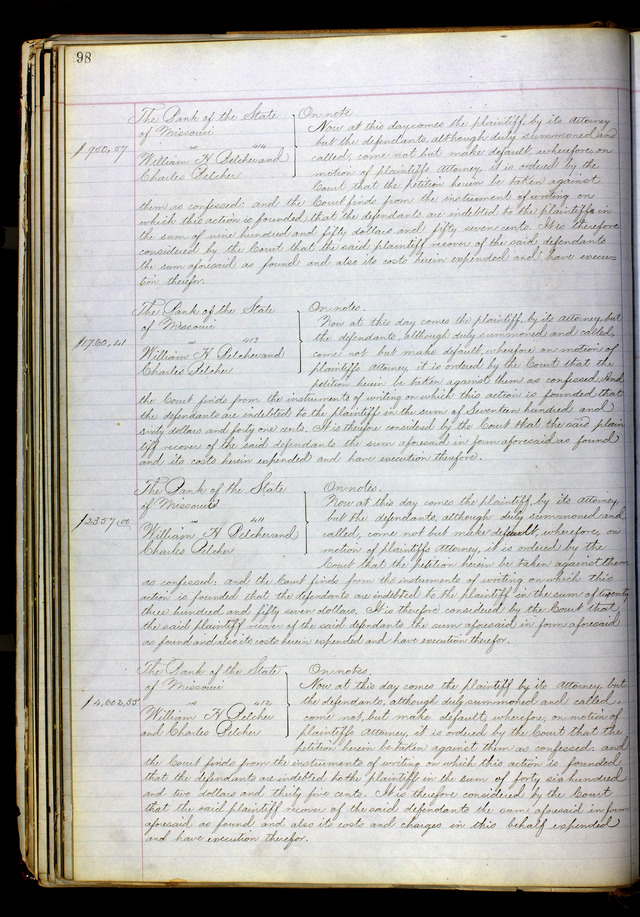 98
The Bank of the State } On note
of Missouri Now at this day comes the plaintiff by its Attorney
vs 414 but the defendants, although duly summoned and
$950,57 William H Pelcher and called, come not but make default, wherefore, on
Charles Pelcher motion of plaintiffs Attorney, it is ordered by the
Court that the petition herein be taken against
them as confessed; and the Court finds from the instrument of writing on
which this action is founded that the defendants are indebted to the plaintiffs in
the sum of nine hundred and fifty dollars and fifty seven cents. It is therefore
considered by the Court that the said plaintiff recover of the said defendants
the sum aforesaid as found and also its costs herein expended and have execu-
tion therefor.
The Bank of the State } On notes.
of Missouri Now at this day comes the plaintiff, by its Attorney, but
vs 413 the defendants, although duly summoned and called,
$1760,41 William H Pelcher and come not but make default, wherefore on motion of
Charles Pelcher plaintiffs Attorney, it is ordered by the Court that the
petition herein be taken against them as confessed. And
the Court finds from the instruments of writing on which this action is founded that
the defendants are indebted to the plaintiff in the sum of Seventeen hundred and
sixty dollars and forty one cents. It is therefore considered by the Court that the said plain-
tiff recover of the said defendants the sum aforesaid in form aforesaid as found
and its costs herein expended and have execution therefore.
The Bank of the State } On notes.
of Missouri Now at this day comes the plaintiff by its Attorney
vs 411 but the defendants, although duly summoned and
$2357,00 William H Pelcher and called, come not but make default, wherefore, on
Charles Pelcher motion of plaintiffs Attorney, it is ordered by the
Court that the petition herein be taken against them
as confessed; and the Court finds from the instruments of writing on which this
action is founded that the defendants are indebted to the plaintiff in the sum of twenty
three hundred and fifty seven dollars. It is therefore considered by the Court that
the said plaintiff recover of the said defendants the sum aforesaid in form aforesaid
as found and also its costs herein expended and have execution therefor.
The Bank of the State } On notes.
of Missouri Now at this day comes the plaintiff by its Attorney but
vs 412 the defendants, although duly summoned and called
$4,602,35 William H Pelcher come not, but make default, wherefore, on motion of
and Charles Pelcher plaintiffs Attorney, it is ordered by the Court that the
petition herein be taken against them as confessed: and
the Court finds from the instruments of writing on which this action is founded
that the defendants are indebted to the plaintiff in the sum of forty six hundred
and two dollars and thirty five cents. It is therefore considered by the Court
that the said plaintiff recover of the said defendants the sum aforesaid in form
aforesaid as found, and also its costs and charges in this behalf expended
and have execution therefor.